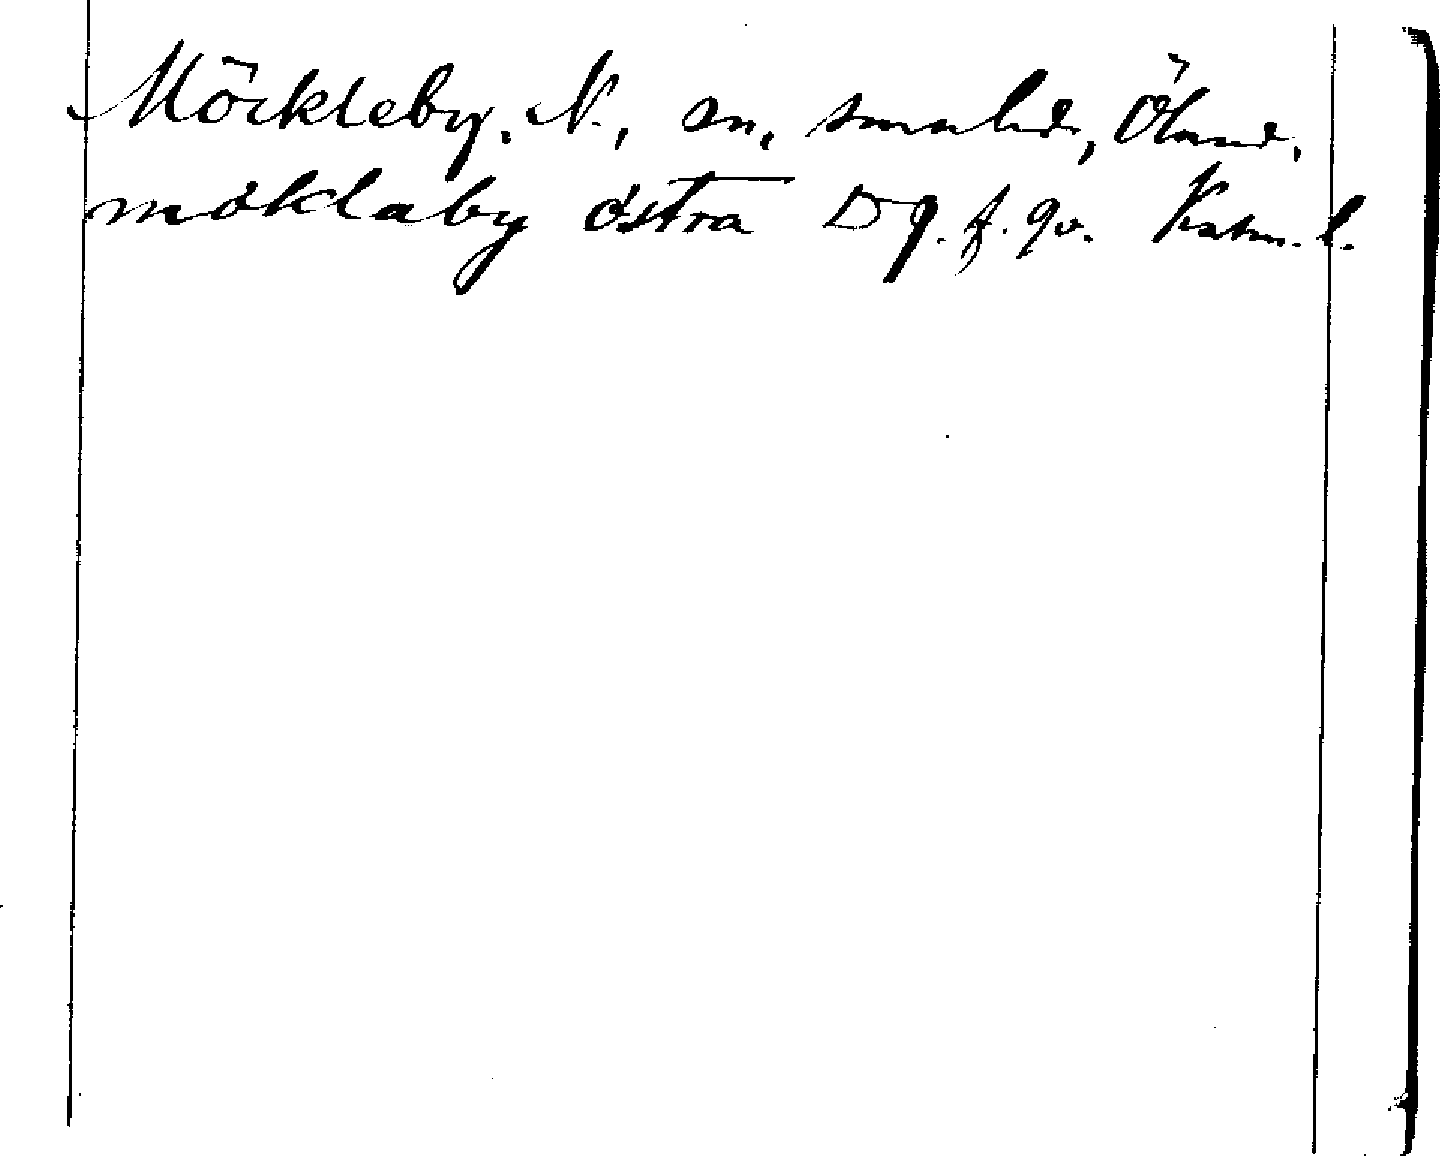 Möckleby, N., sn, Smal hd, Öland.
möklaby östra D 9. f. 90. Kalm. l.